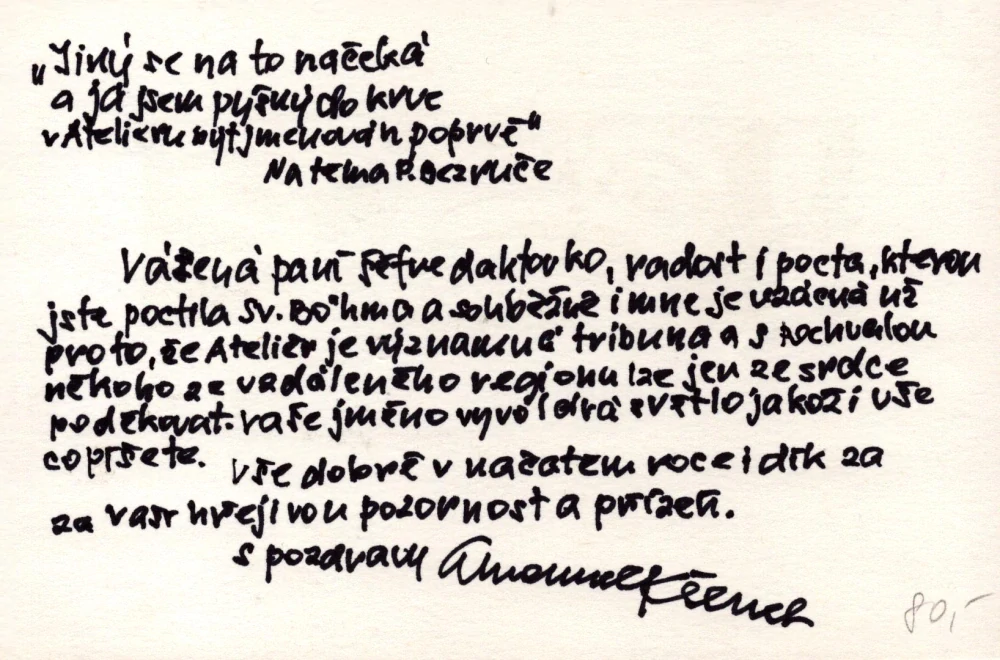 „Jiný se na to načeká
a já jsem pyšný do krve
v Atelieru být jmenován poprvé“
Na tema P. Bezruče
Vážená paní šéfredaktorko, radost i pocta, kterou
jste poctila Sv. Böhma a souběžně i mne je vzácná už
proto, že Atelier je významná tribuna a s pochvalou
někoho ze vzdáleného regionu lze jen ze srdce
poděkovat. Vaše jméno vyvolává světlo jakož i vše
co píšete. Vše dobré v načatem roce i dík za
za vaši hřejivou pozornost a přízeň.
s pozdravy
80,-